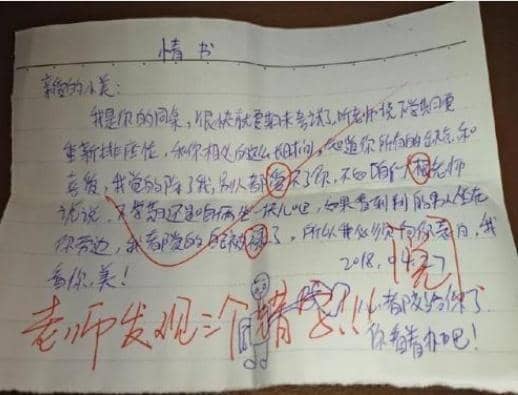 情书
亲爱的小美:
我是你的同桌,很快就要期末考试了,听老师说下学期要
重新排座位,和你相处的这么长时间,知道你所有的缺点和
喜爱,我觉的除了我,别人都受不了你,不如咱们去和老师
说说,下学期还是咱俩坐一块儿吧,如果看到别的男人坐在
你旁边,我都觉的自己被绿了,所以我必须向你表白,我
爱你,美!
2018.04.27
阅
老师发现三个错字!!!
都改给你了
你看着办吧!